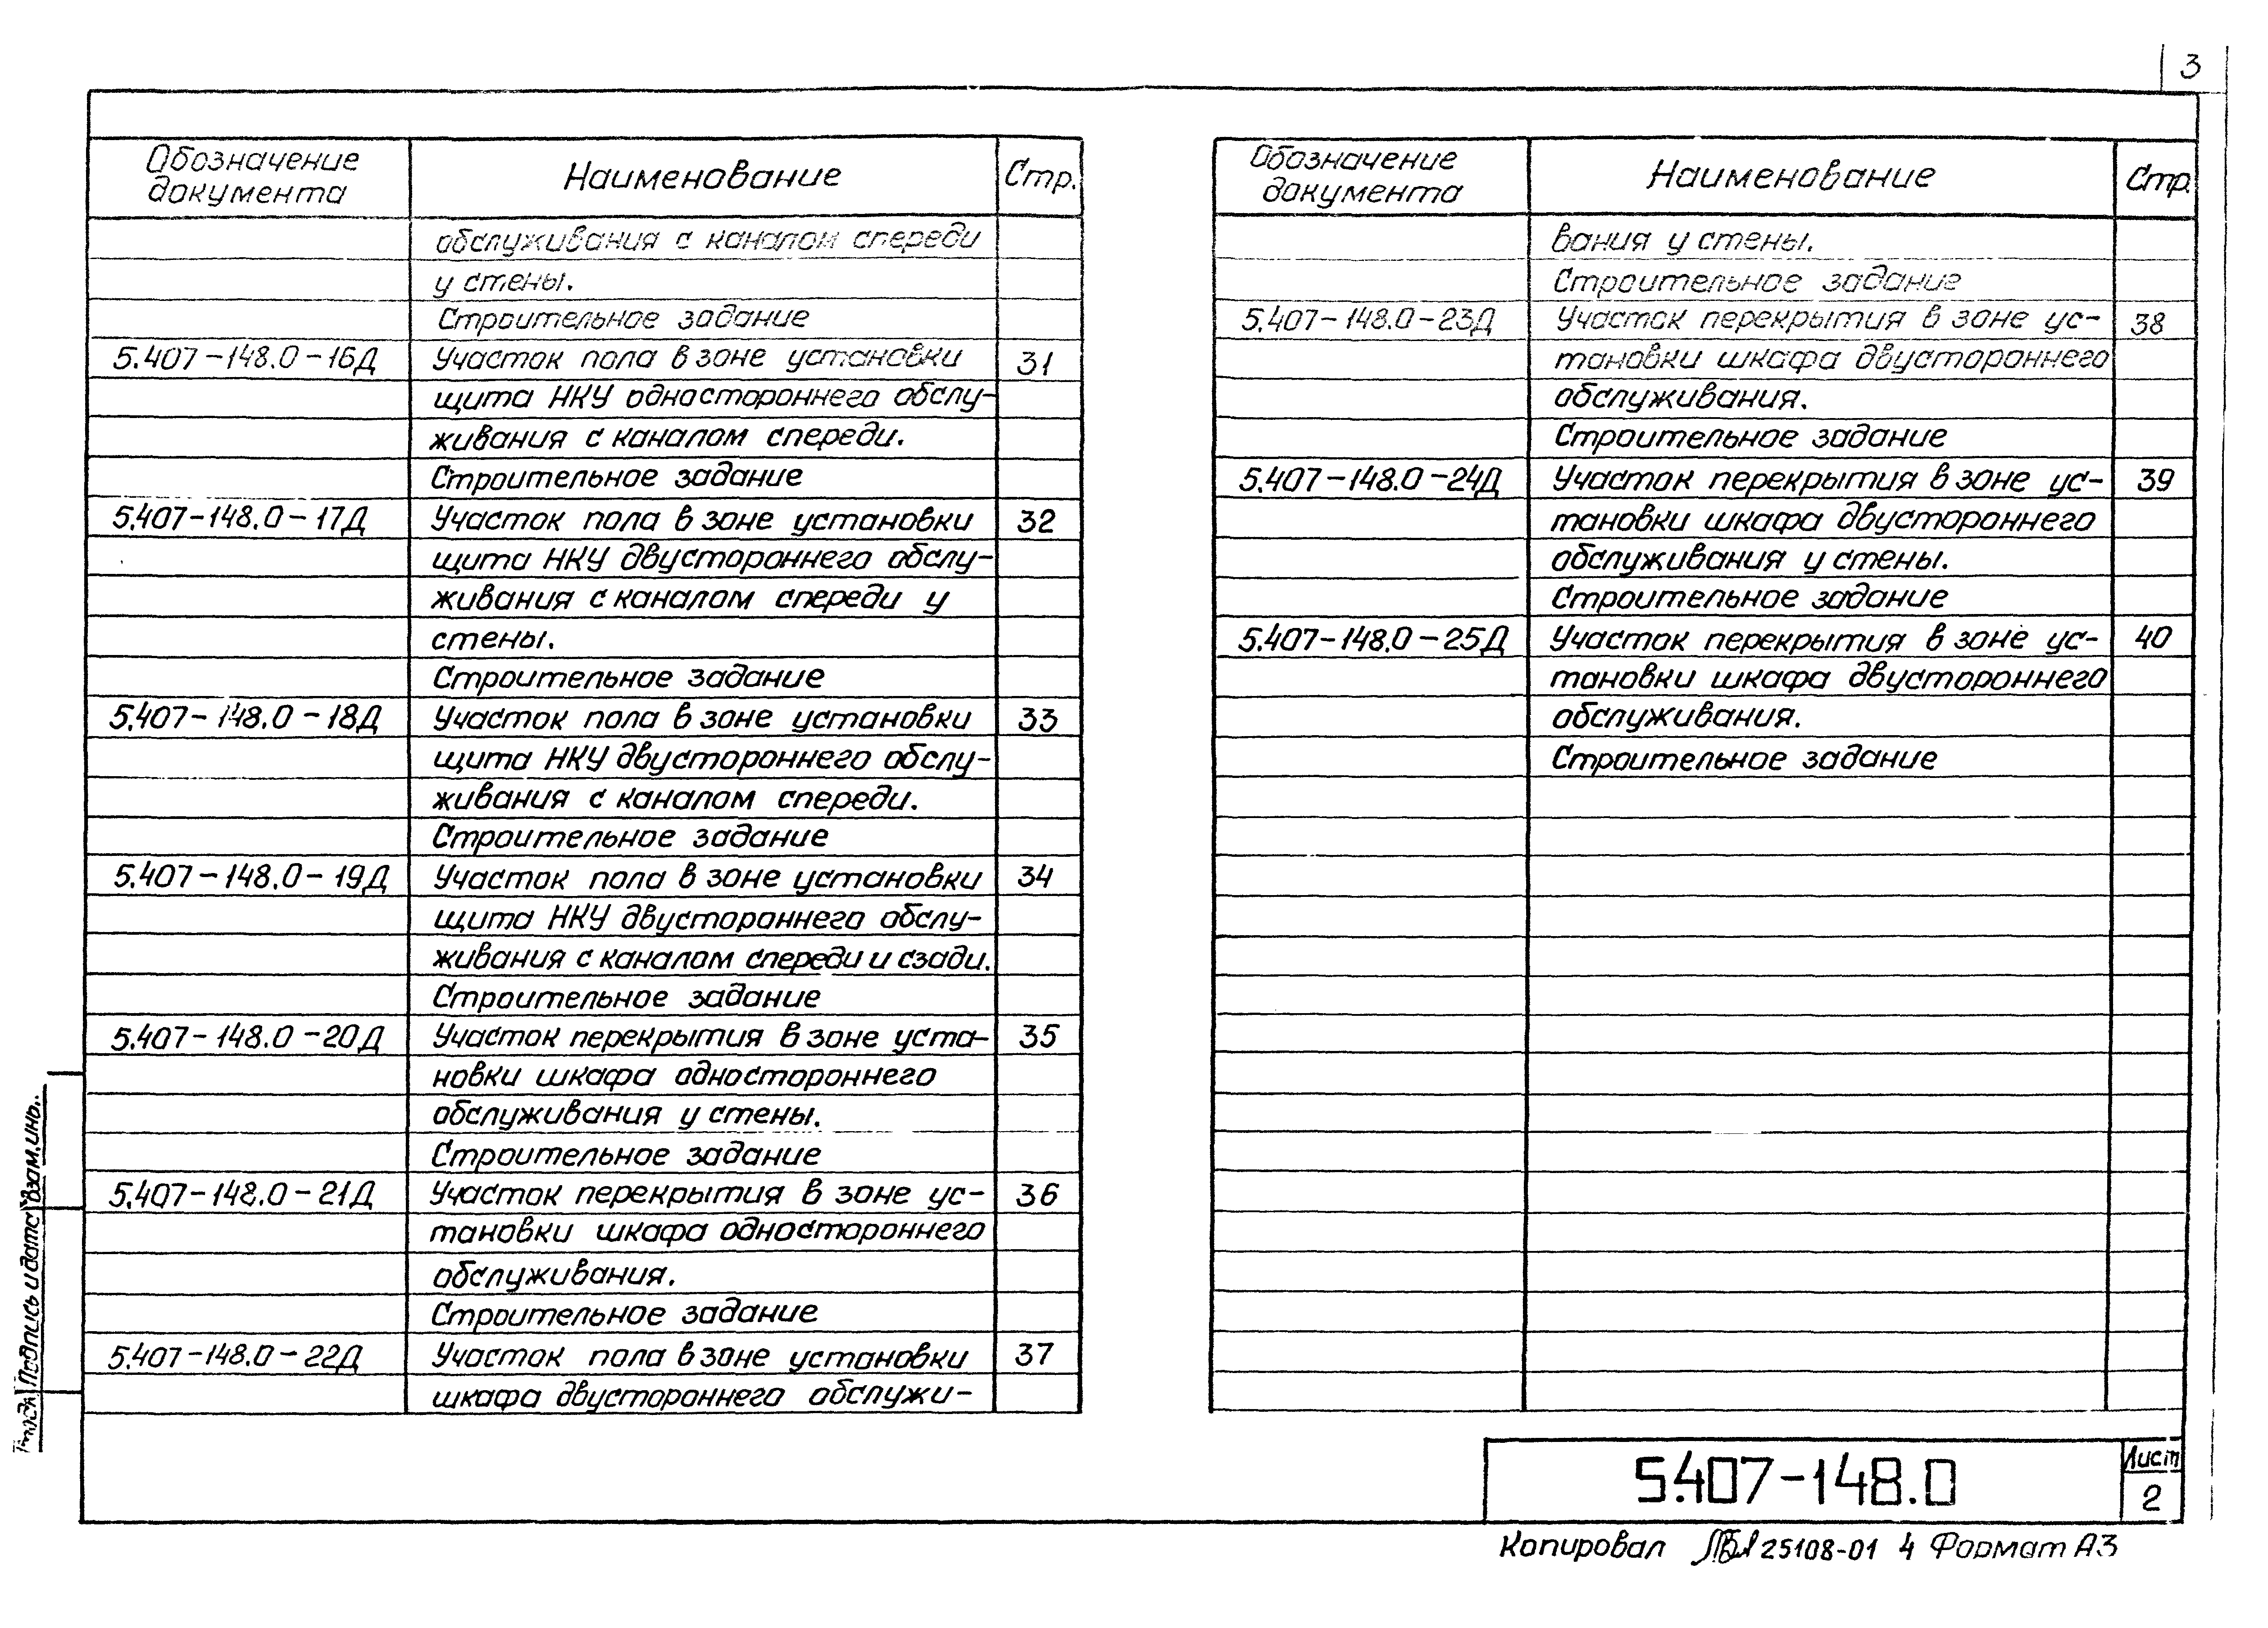 3
Обозначение документа Наименование Стр.
обслуживания с каналом спереди
у стены.
Строительное задание
5.407-148.0-16Д Участок пола в зоне установки 31
щита НКУ одностороннего обслу-
живания с каналом спереди.
Строительное задание
5.407-148.0-17Д Участок пола в зоне установки 32
щита НКУ двустороннего обслу-
живания с каналом спереди у
стены.
Строительное задание
5.407-148.0-18Д Участок пола в зоне установки 33
щита НКУ двустороннего обслу-
живания с каналом спереди.
Строительное задание
5.407-148.0-19Д Участок пола в зоне установки 34
щита НКУ двустороннего обслу-
живания с каналом спереди и сзади.
Строительное задание
5.407-148.0-20Д Участок перекрытия в зоне уста- 35
новки шкафа одностороннего
обслуживания у стены.
Строительное задание
5.407-148.0-21Д Участок перекрытия в зоне ус- 36
тановки шкафа одностороннего
обслуживания.
Строительное задание
5.407-148.0-22Д Участок пола в зоне установки 37
шкафа двустороннего обслужи-
Обозначение документа Наименование Стр.
вания у стены.
Строительное задание
5.407-148.0-23Д Участок перекрытия в зоне ус- 38
тановки шкафа двустороннего
обслуживания.
Строительное задание
5.407-148.0-24Д Участок перекрытия в зоне ус- 39
тановки шкафа двустороннего
обслуживания у стены.
Строительное задание
5.407-148.0-25Д Участок перекрытия в зоне ус- 40
тановки шкафа двустороннего
обслуживания.
Строительное задание
Подпись и дата Взам.инв.
5.407-148.0
Лист
2
Копировал 25108-01 4 Формат А3